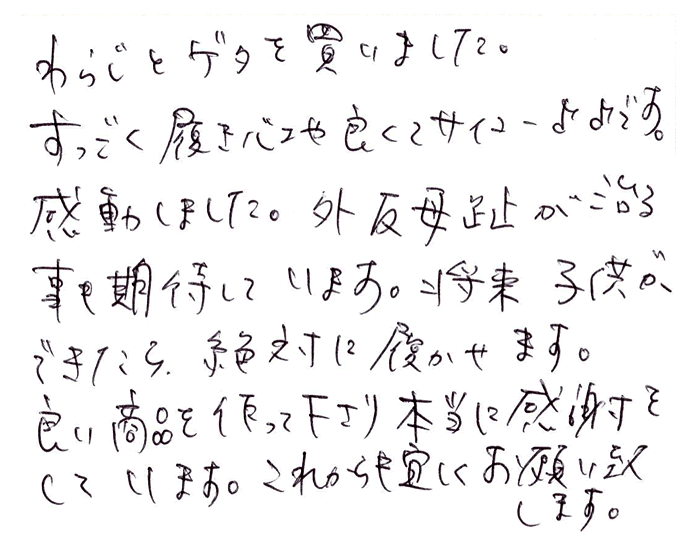 わらじとゲタを買いました。
すっごく履き心地が良くてサイコーです。
感動しました。外反母趾が治る
事も期待しています。将来子供が
できたら、絶対に履かせます。
良い商品を作って下さり本当に感謝を
しています。これからも宜しくお願い致
します。